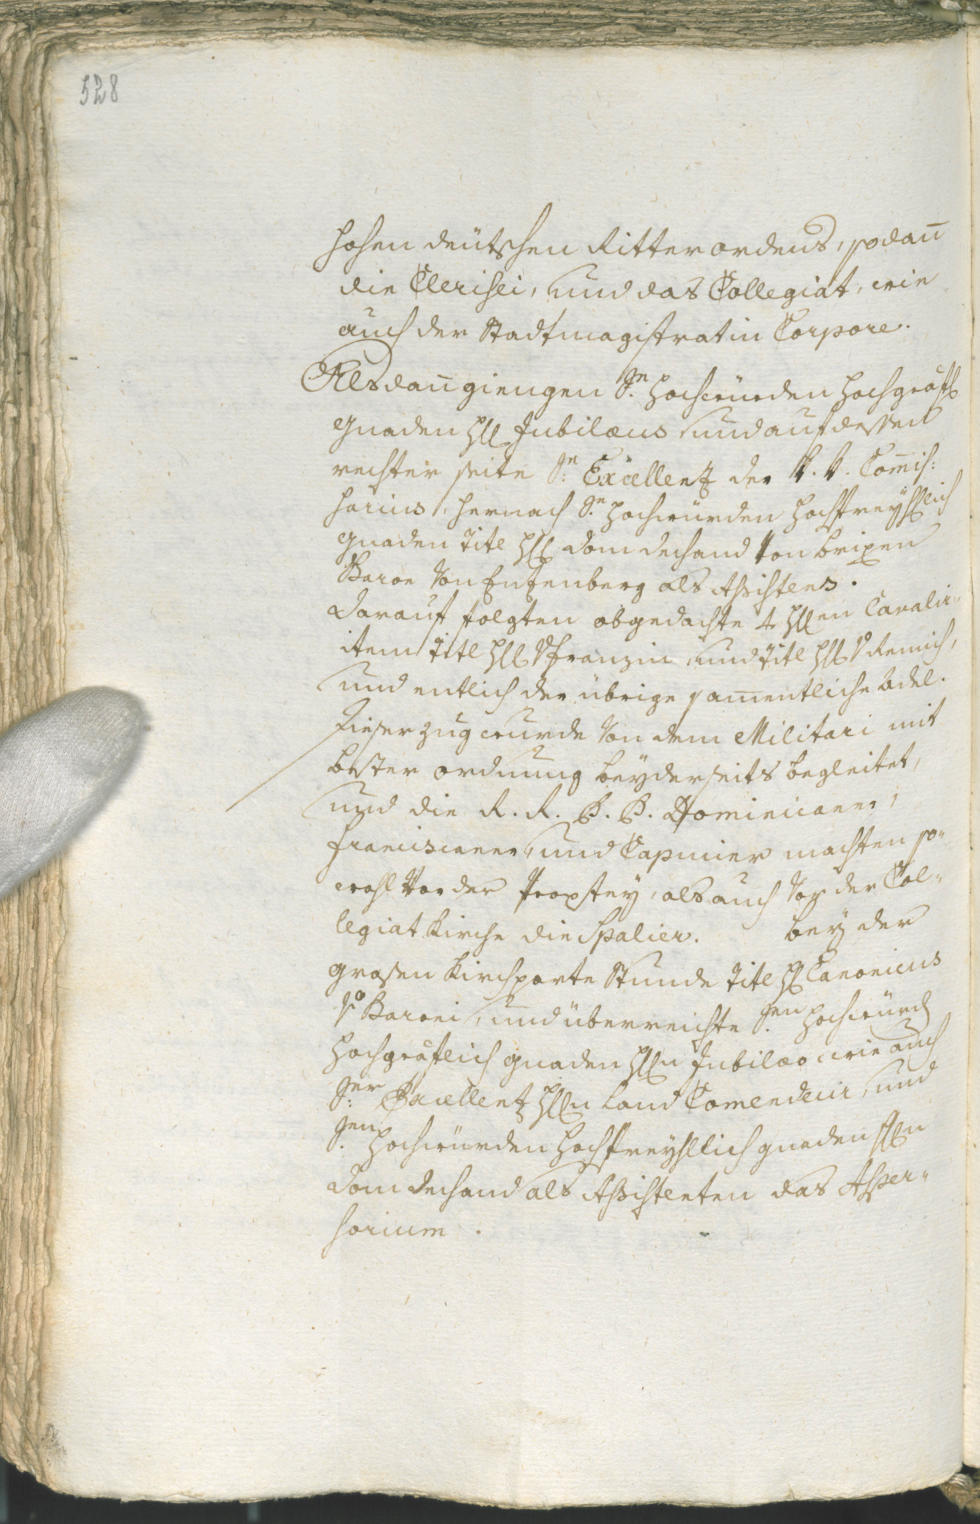 528
hohen deütschen Ritterordens, sodan̄
die Clerisei, und das Collegiat, wie
auch der Stadtmagistrat in Corpore.
Alsdan̄ giengen Se. hochwürden hochgräfl
gnaden H. Jubilæus, und auf dessen
rechter seite Se. Excellentz der k. k. Com̄is:
sarius, hernach Se. hochwürden hochfreyhlich
gnaden Titl H. Domdechand von brixen
Baron von Enzenberg als Assistens.
darauf folgten obgedachte 4 H.en Cavalir
item Titl H. v. Franzin, und Titl H. v. Remich,
und entlich der übrige sam̄entliche Adel.
dieser zug wurde von dem Militari mit
bester ordnung beyderseits begleitet,
und die R. R. P. P. Dominicaner,
Franciscaner, und Capuciner machten so=
wohl vor der Propstey, als auch vor der Col=
legiat Kirche die Spalier. bey der
grosen Kirchporte stunde Titl H. Canonicus
v. Baroni, und überreichte Sen hochwürd
hochgräflich gnaden H.n Jubilæo wie auch
Ser Excellentz H.n Land Comendeur, und
Sen hochwürden hochfreyhllich gnaden H.n
Domdechand als Assistenten das Asper=
sorium.